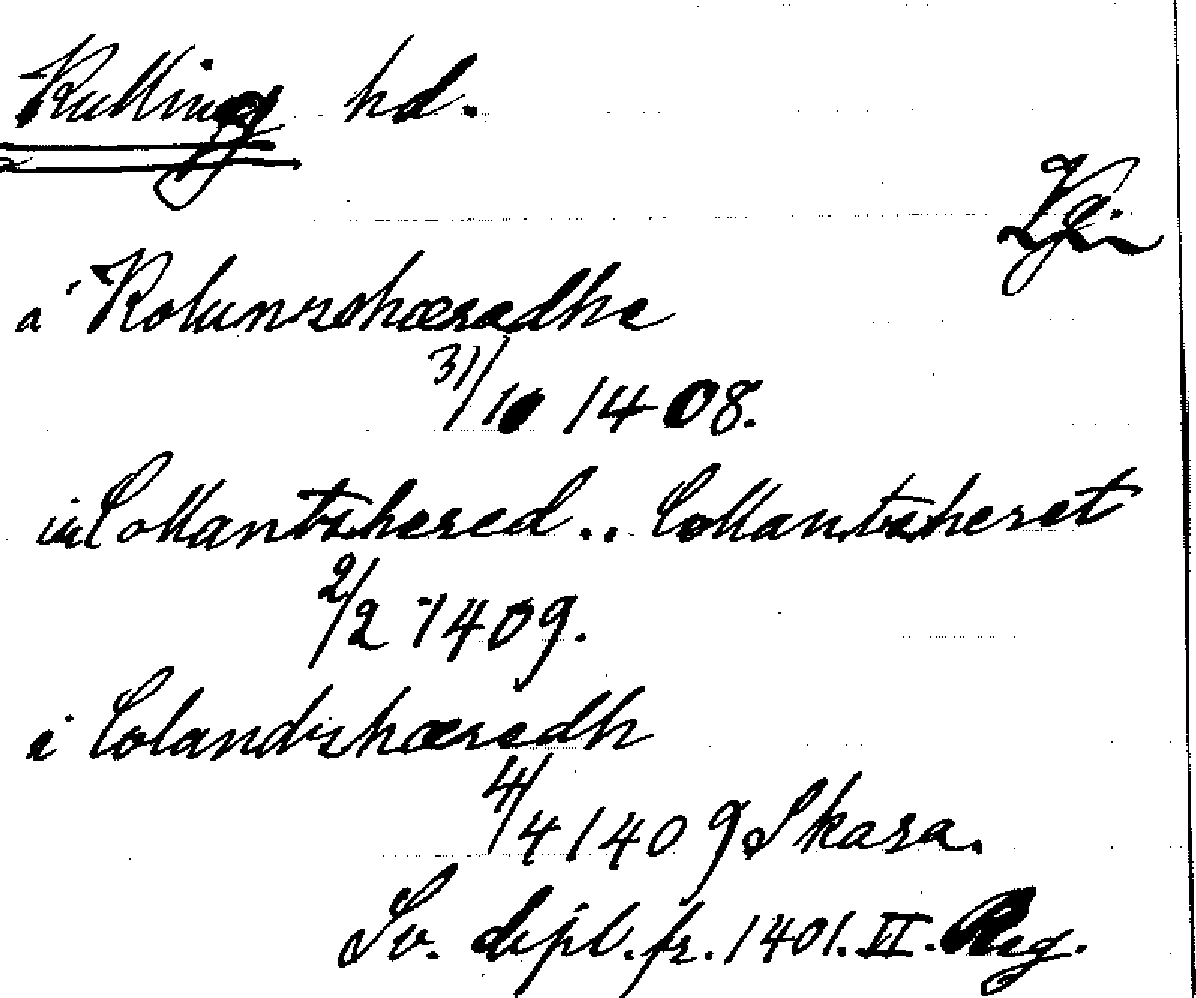 Kulling hd.
Vg.
a Kolunzshæradhe
31/10 1408.
in Collantzhered .. Collantzheret
2/2 1409.
i Colandzhæredh
4/4 1409 Skara.
Sv. dipl. fr. 1401. II. Reg.